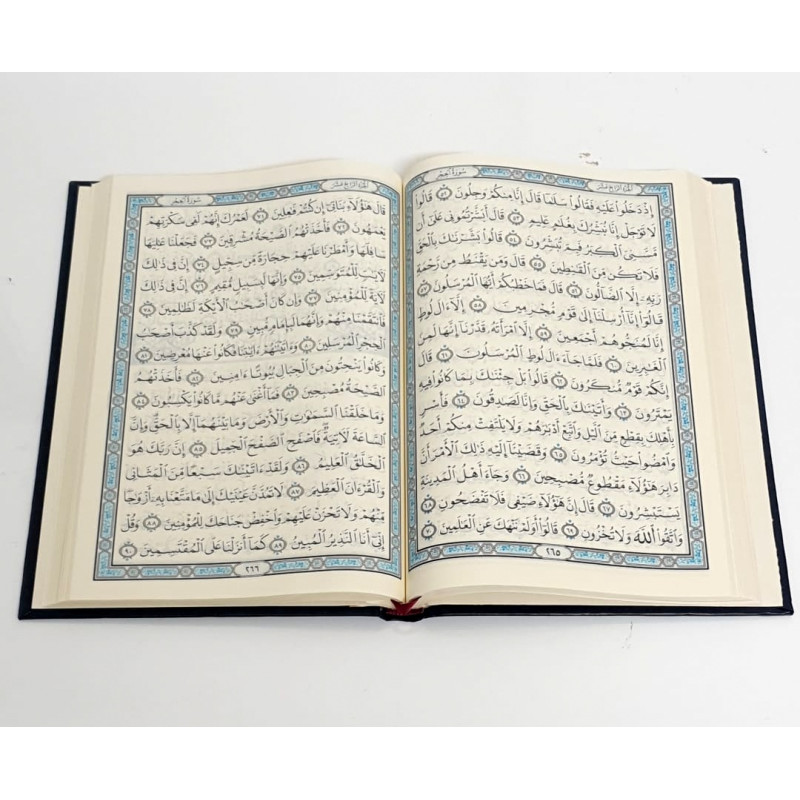 الجزء الرابع عشر سورة الحجر
إِذْ دَخَلُوا۟ عَلَيْهِ فَقَالُوا۟ سَلَٰمًا قَالَ إِنَّا مِنكُمْ وَجِلُونَ ٥٢ قَالُوا۟
لَا تَوْجَلْ إِنَّا نُبَشِّرُكَ بِغُلَٰمٍ عَلِيمٍ ٥٣ قَالَ أَبَشَّرْتُمُونِى عَلَىٰٓ أَن
مَّسَّنِىَ ٱلْكِبَرُ فَبِمَ تُبَشِّرُونَ ٥٤ قَالُوا۟ بَشَّرْنَٰكَ بِٱلْحَقِّ
فَلَا تَكُن مِّنَ ٱلْقَٰنِطِينَ ٥٥ قَالَ وَمَن يَقْنَطُ مِن رَّحْمَةِ
رَبِّهِۦٓ إِلَّا ٱلضَّآلُّونَ ٥٦ قَالَ فَمَا خَطْبُكُمْ أَيُّهَا ٱلْمُرْسَلُونَ ٥٧
قَالُوٓا۟ إِنَّآ أُرْسِلْنَآ إِلَىٰ قَوْمٍ مُّجْرِمِينَ ٥٨ إِلَّآ ءَالَ لُوطٍ
إِنَّا لَمُنَجُّوهُمْ أَجْمَعِينَ ٥٩ إِلَّا ٱمْرَأَتَهُۥ قَدَّرْنَآ إِنَّهَا لَمِنَ
ٱلْغَٰبِرِينَ ٦٠ فَلَمَّا جَآءَ ءَالَ لُوطٍ ٱلْمُرْسَلُونَ ٦١ قَالَ
إِنَّكُمْ قَوْمٌ مُّنكَرُونَ ٦٢ قَالُوا۟ بَلْ جِئْنَٰكَ بِمَا كَانُوا۟ فِيهِ
يَمْتَرُونَ ٦٣ وَأَتَيْنَٰكَ بِٱلْحَقِّ وَإِنَّا لَصَٰدِقُونَ ٦٤ فَأَسْرِ
بِأَهْلِكَ بِقِطْعٍ مِّنَ ٱلَّيْلِ وَٱتَّبِعْ أَدْبَٰرَهُمْ وَلَا يَلْتَفِتْ مِنكُمْ أَحَدٌ
وَٱمْضُوا۟ حَيْثُ تُؤْمَرُونَ ٦٥ وَقَضَيْنَآ إِلَيْهِ ذَٰلِكَ ٱلْأَمْرَ أَنَّ
دَابِرَ هَٰٓؤُلَآءِ مَقْطُوعٌ مُّصْبِحِينَ ٦٦ وَجَآءَ أَهْلُ ٱلْمَدِينَةِ
يَسْتَبْشِرُونَ ٦٧ قَالَ إِنَّ هَٰٓؤُلَآءِ ضَيْفِى فَلَا تَفْضَحُونِ ٦٨
وَٱتَّقُوا۟ ٱللَّهَ وَلَا تُخْزُونِ ٦٩ قَالُوٓا۟ أَوَلَمْ نَنْهَكَ عَنِ ٱلْعَٰلَمِينَ ٧٠
٢٦٥
الجزء الرابع عشر سورة الحجر
قَالَ هَٰٓؤُلَآءِ بَنَاتِىٓ إِن كُنتُمْ فَٰعِلِينَ ٧١ لَعَمْرُكَ إِنَّهُمْ لَفِى سَكْرَتِهِمْ
يَعْمَهُونَ ٧٢ فَأَخَذَتْهُمُ ٱلصَّيْحَةُ مُشْرِقِينَ ٧٣ فَجَعَلْنَا عَٰلِيَهَا
سَافِلَهَا وَأَمْطَرْنَا عَلَيْهِمْ حِجَارَةً مِّن سِجِّيلٍ ٧٤ إِنَّ فِى ذَٰلِكَ
لَءَايَٰتٍ لِّلْمُتَوَسِّمِينَ ٧٥ وَإِنَّهَا لَبِسَبِيلٍ مُّقِيمٍ ٧٦ إِنَّ فِى ذَٰلِكَ
لَءَايَةً لِّلْمُؤْمِنِينَ ٧٧ وَإِن كَانَ أَصْحَٰبُ ٱلْأَيْكَةِ لَظَٰلِمِينَ ٧٨
فَٱنتَقَمْنَا مِنْهُمْ وَإِنَّهُمَا لَبِإِمَامٍ مُّبِينٍ ٧٩ وَلَقَدْ كَذَّبَ أَصْحَٰبُ
ٱلْحِجْرِ ٱلْمُرْسَلِينَ ٨٠ وَءَاتَيْنَٰهُمْ ءَايَٰتِنَا فَكَانُوا۟ عَنْهَا مُعْرِضِينَ ٨١
وَكَانُوا۟ يَنْحِتُونَ مِنَ ٱلْجِبَالِ بُيُوتًا ءَامِنِينَ ٨٢ فَأَخَذَتْهُمُ
ٱلصَّيْحَةُ مُصْبِحِينَ ٨٣ فَمَآ أَغْنَىٰ عَنْهُم مَّا كَانُوا۟ يَكْسِبُونَ ٨٤
وَمَا خَلَقْنَا ٱلسَّمَٰوَٰتِ وَٱلْأَرْضَ وَمَا بَيْنَهُمَآ إِلَّا بِٱلْحَقِّ وَإِنَّ
ٱلسَّاعَةَ لَءَاتِيَةٌ فَٱصْفَحِ ٱلصَّفْحَ ٱلْجَمِيلَ ٨٥ إِنَّ رَبَّكَ هُوَ
ٱلْخَلَّٰقُ ٱلْعَلِيمُ ٨٦ وَلَقَدْ ءَاتَيْنَٰكَ سَبْعًا مِّنَ ٱلْمَثَانِى
وَٱلْقُرْءَانَ ٱلْعَظِيمَ ٨٧ لَا تَمُدَّنَّ عَيْنَيْكَ إِلَىٰ مَا مَتَّعْنَا بِهِۦٓ أَزْوَٰجًا
مِّنْهُمْ وَلَا تَحْزَنْ عَلَيْهِمْ وَٱخْفِضْ جَنَاحَكَ لِلْمُؤْمِنِينَ ٨٨ وَقُلْ
إِنِّىٓ أَنَا ٱلنَّذِيرُ ٱلْمُبِينُ ٨٩ كَمَآ أَنزَلْنَا عَلَى ٱلْمُقْتَسِمِينَ ٩٠
٢٦٦